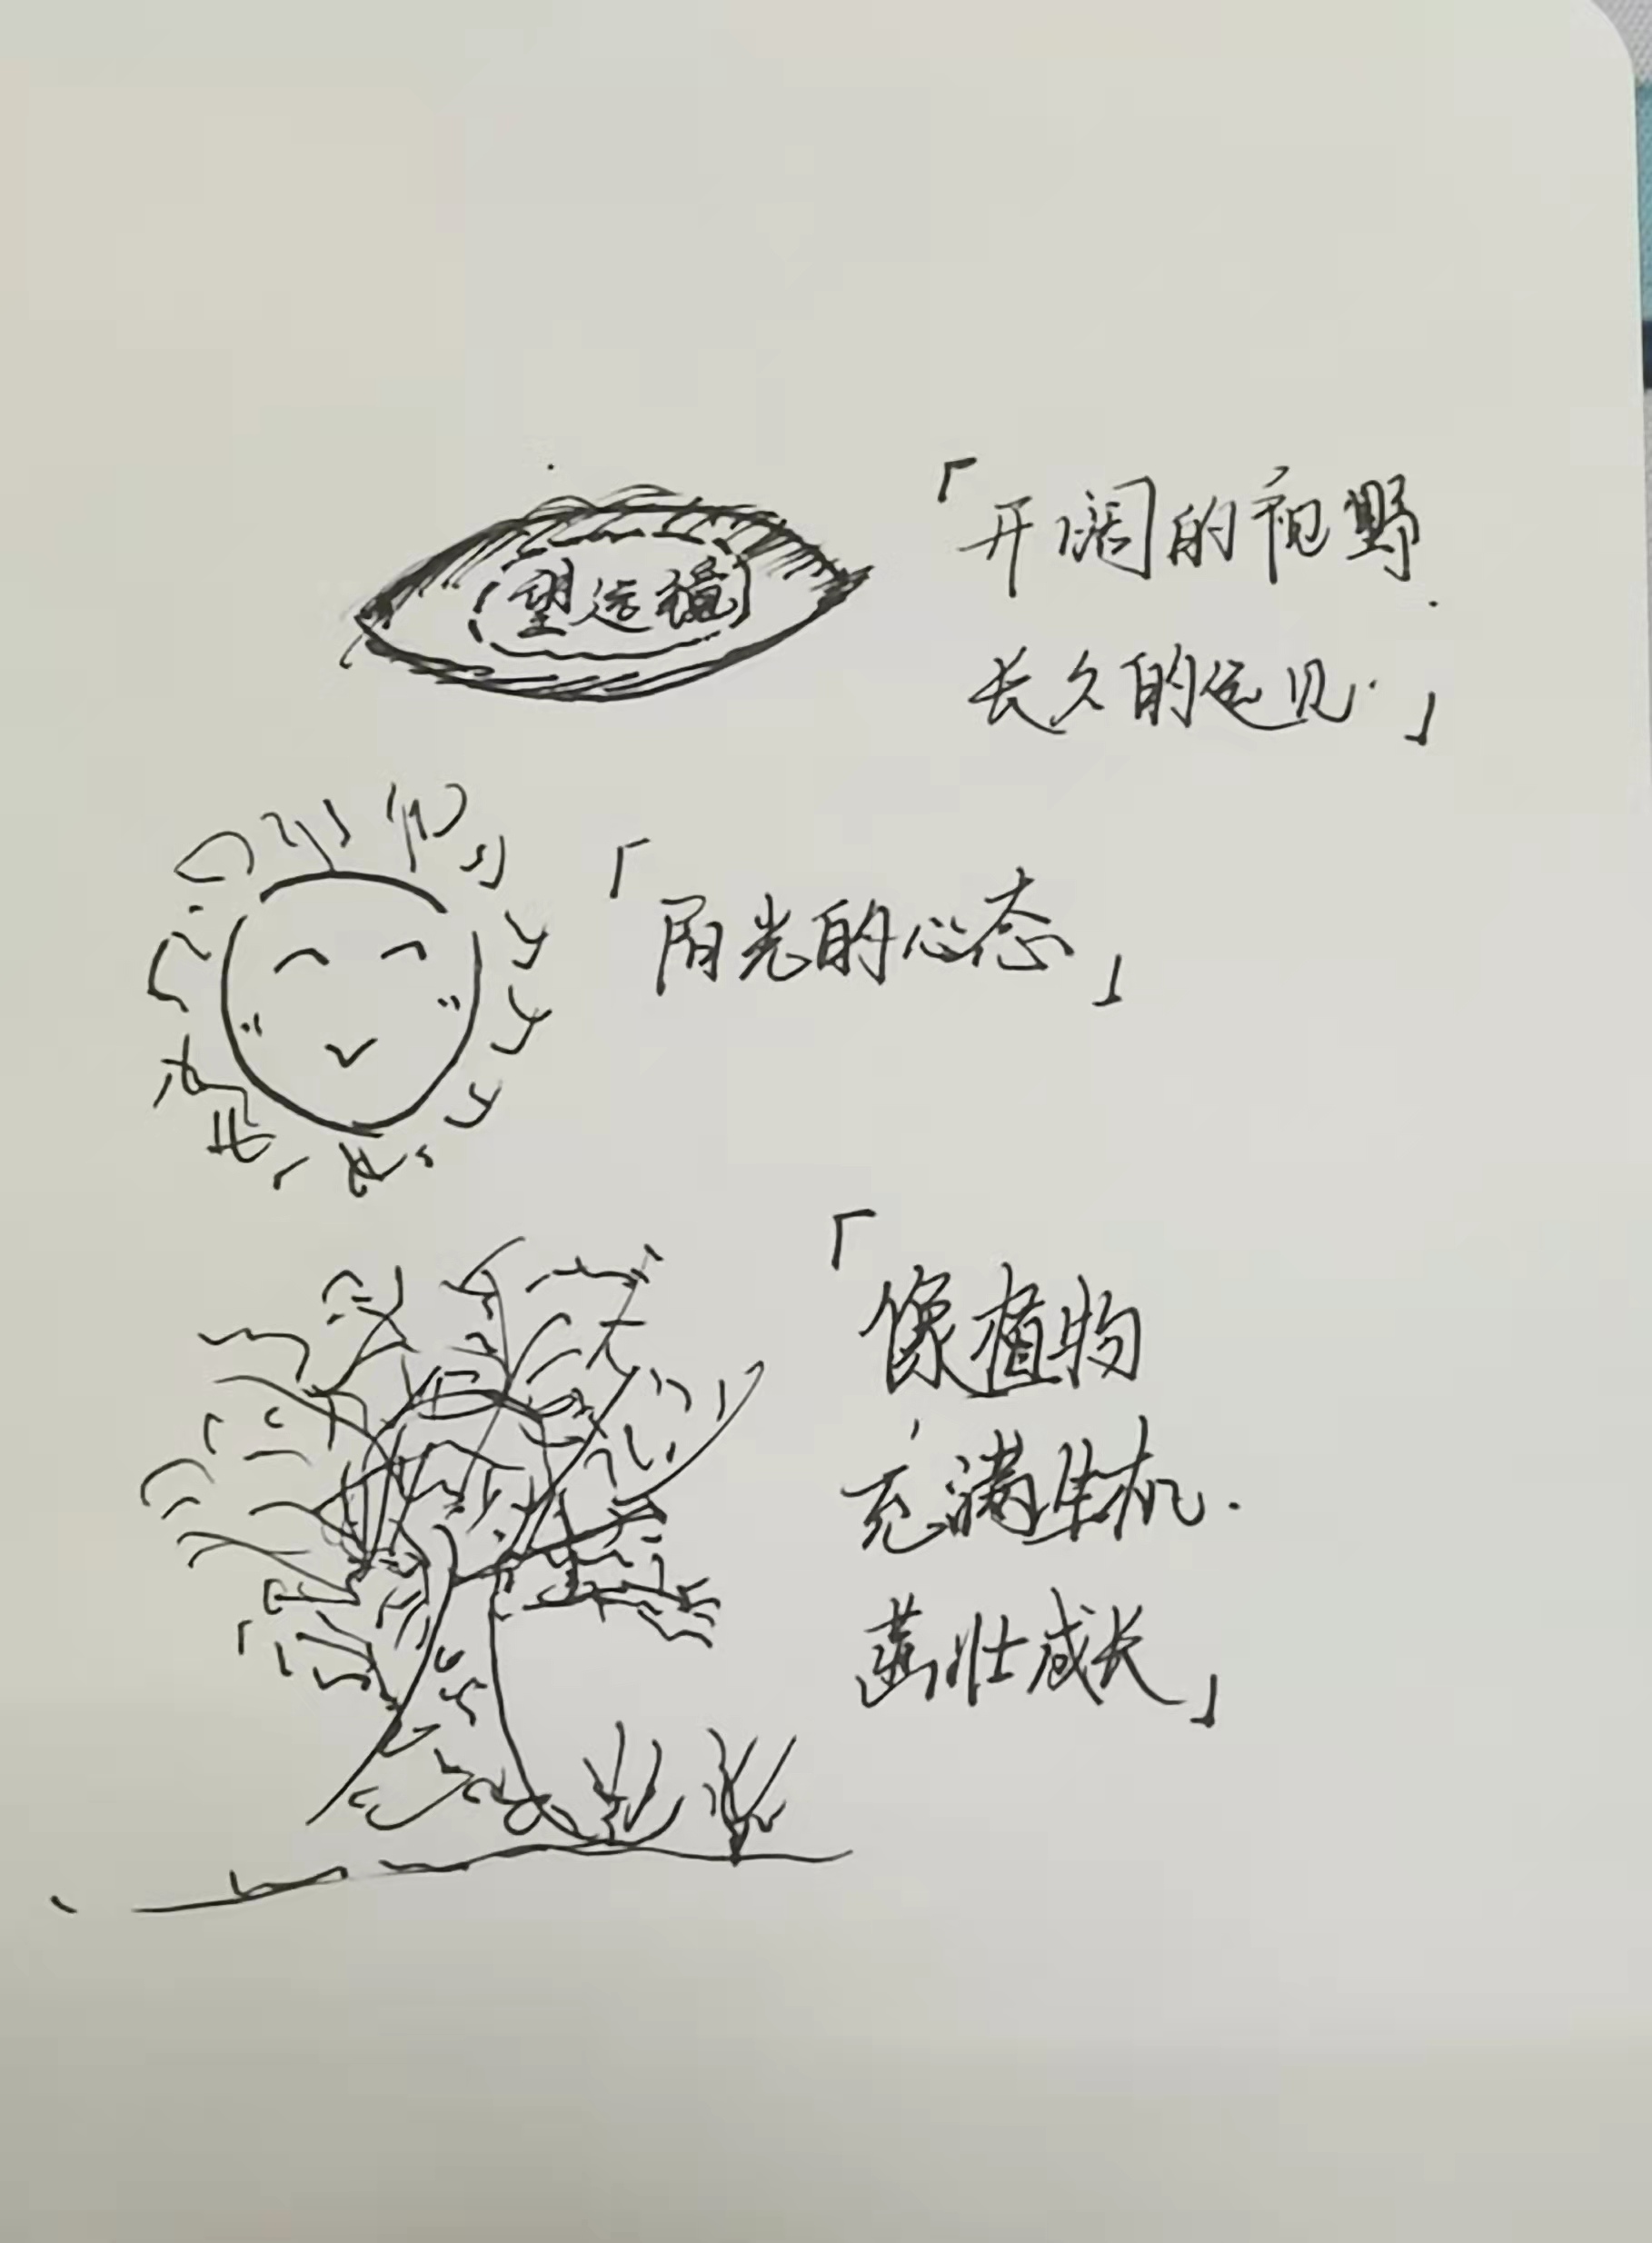 望远镜
「开阔的视野.
长久的远见.」
「阳光的心态」
「像植物
充满生机.
茁壮成长」